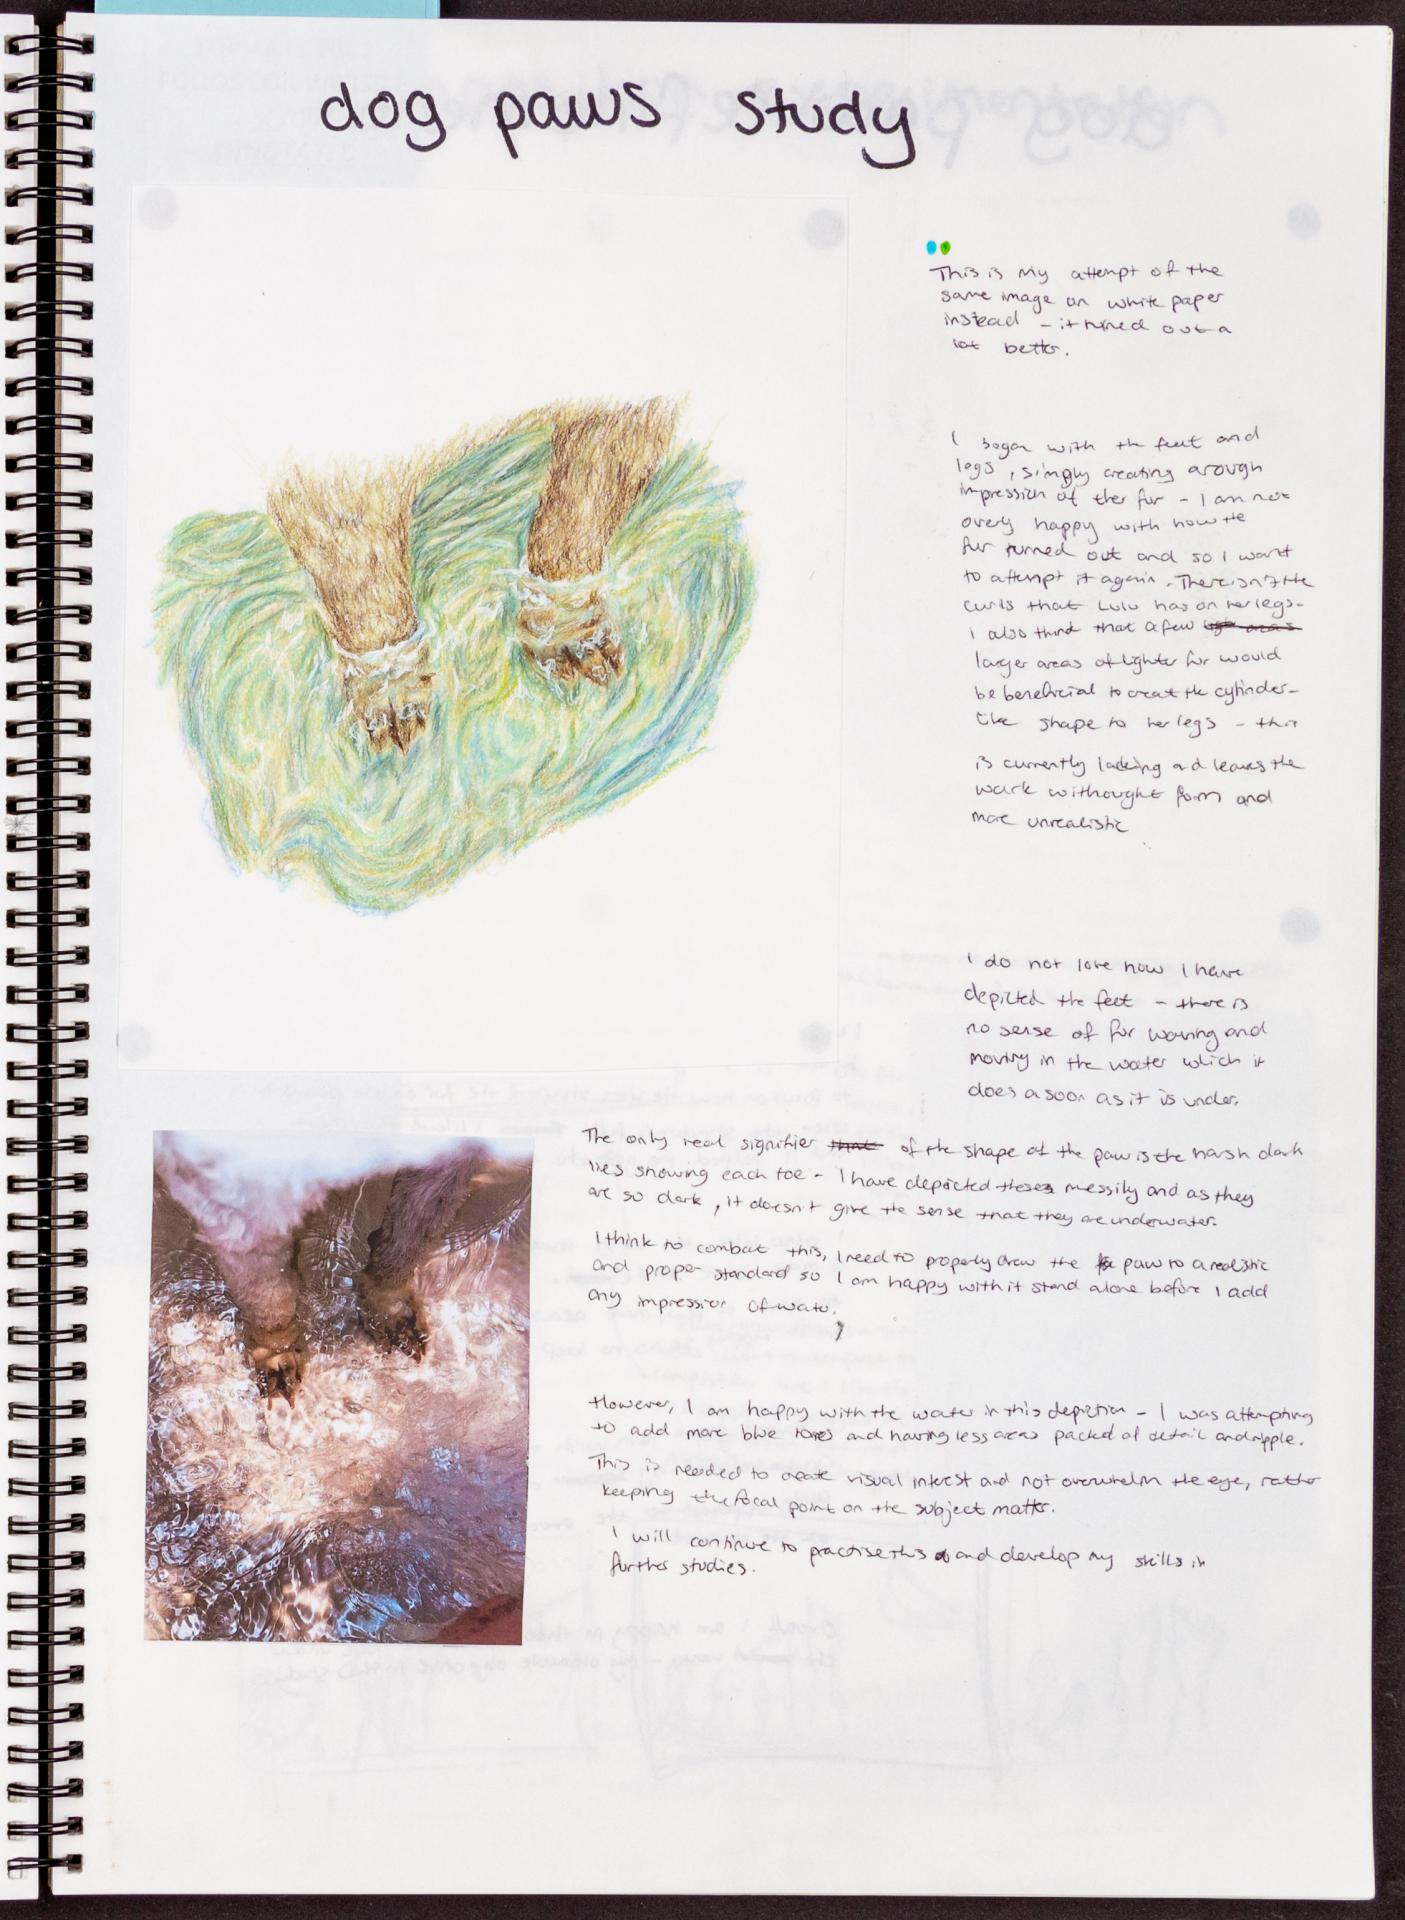 dog paws study
This is my attempt of the
same image on white paper
instead - it turned out a
lot better.
I began with the feet and
legs, simply creating a rough
impression of ther fur - I am not
overy happy with how the
fur turned out and so I want
to attempt it again. There isn't the
curls that Lulu has on her legs.
I also think that a few
larger areas of lighter fur would
be beneficial to creat the cylinder-
like shape to her legs - this
is currently lacking and leaves the
work withought form and
more unrealistic
I do not love how I have
depicted the feet - there is
no sense of fur waving and
moving in the water which it
does a soon as it is under.
The only real signifier that of the shape of the paw is the harsh dark
lies showing each toe - I have depicted these messily and as they
are so dark, it doesn't give the sense that they are underwater.
I think to combat this, I need to properly draw the paw to a realistic
and proper standard so I am happy with it stand alone before I add
any impression of water.
However, I am happy with the water in this depiction - I was attempting
to add more blue tones and having less areas packed of detail and ripple.
This is needed to create visual interest and not overwhelm the eye, rather
keeping the focal point on the subject matter.
I will continue to practise this and develop my skills in
further studies.